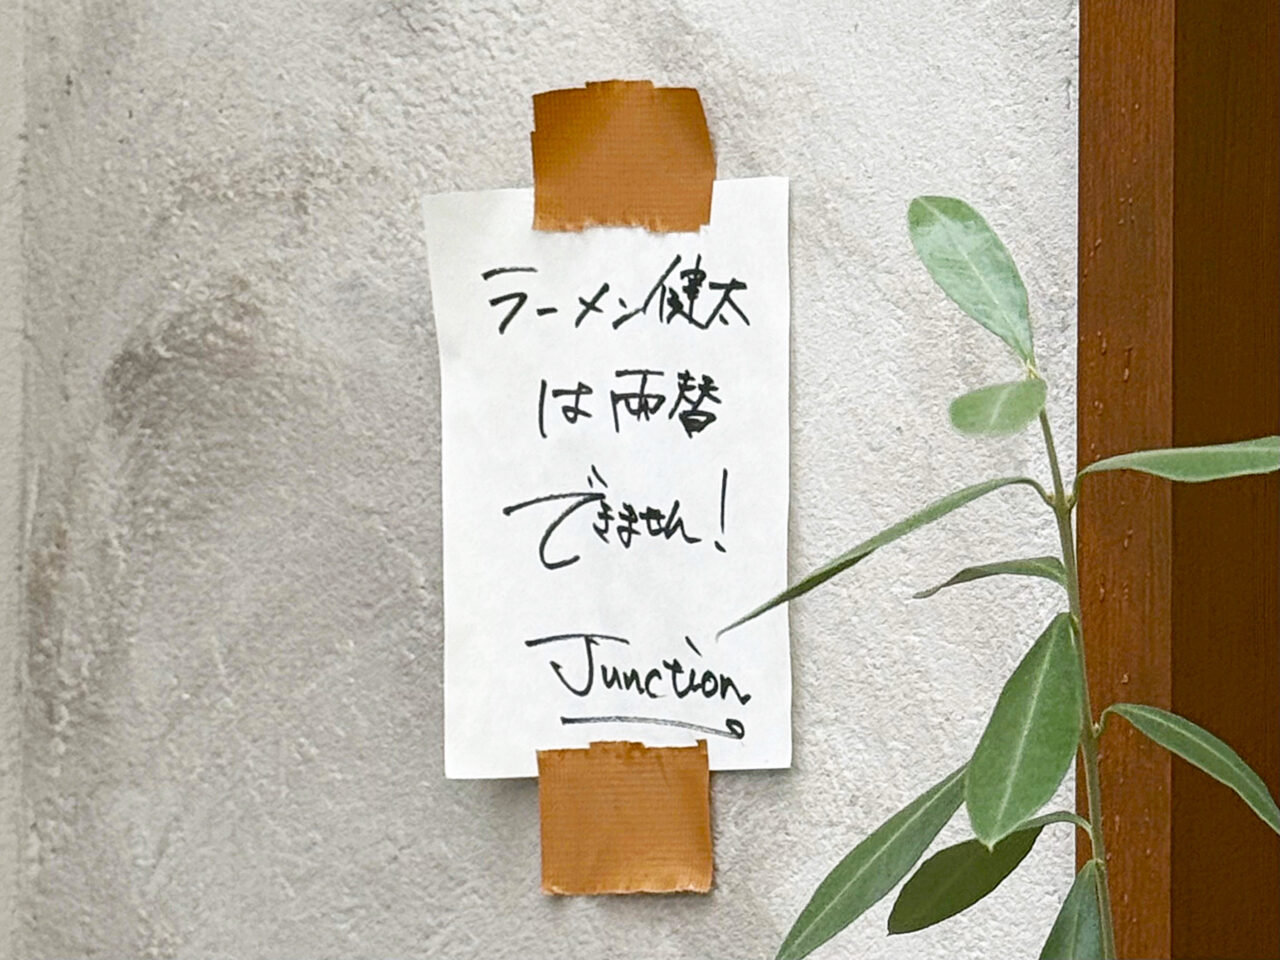 ラーメン健太
は両替
できません!
Junction